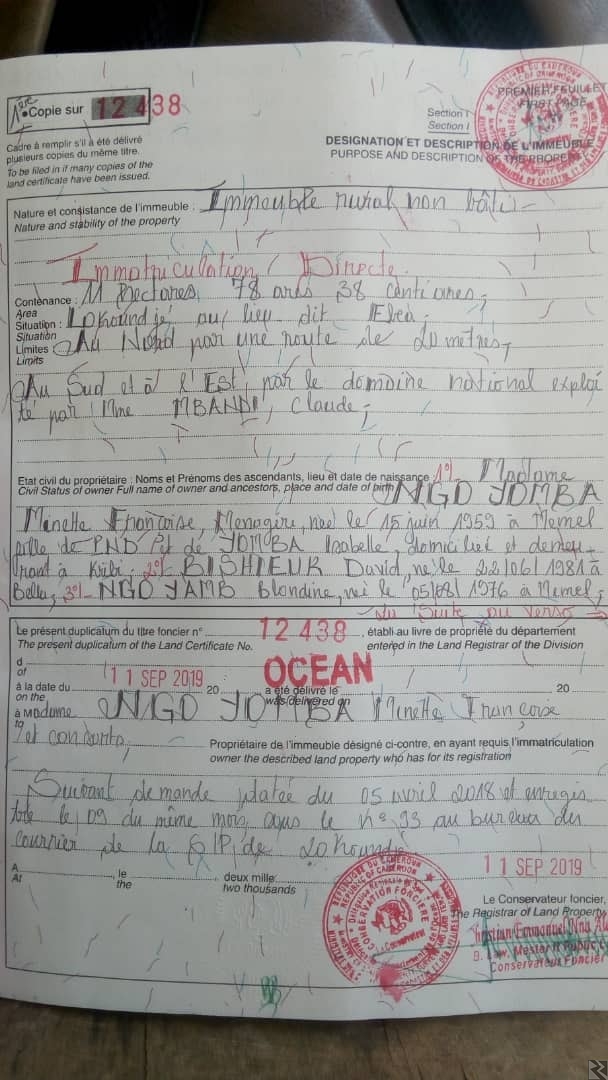 1ère Copie sur 12438
PREMIER FEUILLET
FIRST PAGE
Section I
Section I
Cadre à remplir s'il a été délivré
plusieurs copies du même titre.
To be filed in if many copies of the
land certificate have been issued.
DESIGNATION ET DESCRIPTION DE L'IMMEUBLE
PURPOSE AND DESCRIPTION OF THE PROPERTY
Nature et consistance de l'immeuble : Immeuble rural non bâti -
Nature and stability of the property
Immatriculation Directe
Contenance : 11 Hectares 78 ares 38 centiares,
Area
Situation : Lokoundjé au lieu dit Elea.
Situation
Limites Au Nord par une route de 20 metres,
Limits
Au Sud et à l'Est, par le domaine national exploi
té par Mme MBANDI, Claude;
Etat civil du propriétaire : Noms et Prénoms des ascendants, lieu et date de naissance 1°/- Madame
Civil Status of owner Full name of owner and ancestors, place and date of birth NGO JOMBA
Minette Françoise, Menagère, née le 15 juin 1959 à Memel
fille de et de JOMBA Isabelle, domiciliée et demeu-
rant à Kribi. 2°/- BISHIEUR David, né le 22/06/1981 à
3°/- NGO JAMB Blondine, née le 05/08/1976 à Memel;
Suite au Verso →
Le présent duplicatum du titre foncier n° 12438, établi au livre de propriété du département
The present duplicatum of the Land Certificate No. entered in the Land Registrar of the Division
d OCEAN
of
à la date du 11 SEP 2019 20 a été délivré le 20
on the was delivered on
à Madame NGO JOMBA Minette Françoise
to
et consorts, Propriétaire de l'immeuble désigné ci-contre, en ayant requis l'immatriculation
owner the described land property who has for its registration
Suivant demande datée du 05 avril 2018 et enregis
trée le 09 du même mois, sous le n° 93 au bureau du
courrier de la de Lokoundjé
A , le deux mille
At the two thousands
11 SEP 2019
Le Conservateur foncier,
The Registrar of Land Property
Conservateur Foncier